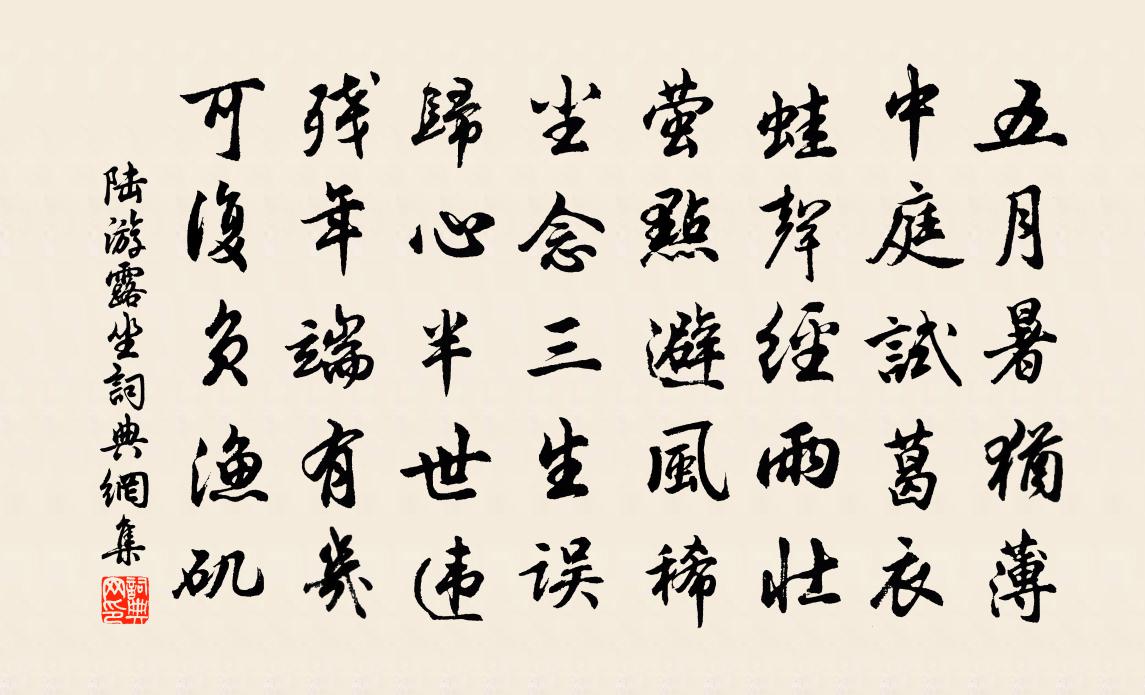 五月暑猶薄
中庭試葛衣
蛙聲經雨壮
萤點避風稀
尘念三生误
歸心半世违
残年端有幾
可復负漁矶
陆游露坐詞典網集
詞典網印